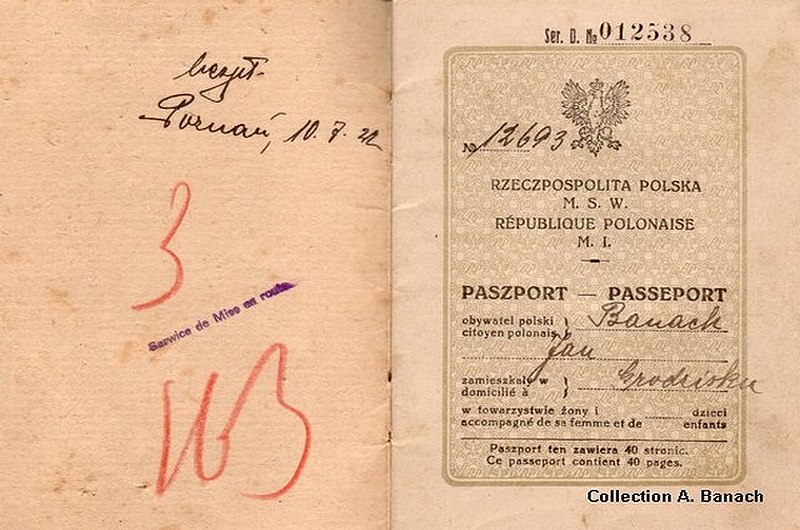 bezpł.
Poznań, 10.7.22
3
Service de Mise en route
163
Ser. D. № 012538
№ 12693
RZECZPOSPOLITA POLSKA
M. S. W.
RÉPUBLIQUE POLONAISE
M. I.
PASZPORT — PASSEPORT
obywatel polski } Banach
citoyen polonais
Jan
zamieszkały w } Grodzisku
domicilié à
w towarzystwie żony i dzieci
accompagné de sa femme et de enfants
Paszport ten zawiera 40 stronic.
Ce passeport contient 40 pages.
Collection A. Banach